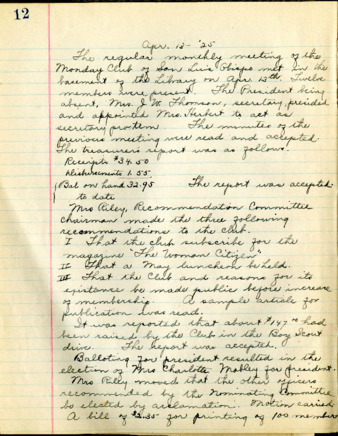 12
Apr. 13 - '25
The regular monthly meeting of the
Monday Club of San Luis Obispo met in the
basement of the Library on Apr 13th. Twelve
members were present. The President being
absent, Mrs. J. W. Thomson, secretary, presided
and appointed Mrs. Herbert to act as
secretary protem The minutes of the
previous meeting were read and accepted.
The treasurers report was as follows:
Receipts $34.50
Disbursements 1.55
Bal on hand 32.95 The report was accepted.
to date
Mrs Riley, Recommendation Committee
chairman made the three following
recommendations to the club.
I That the club subscribe for the
magazine "The Woman Citizen"
II That a May luncheon be held.
III That the Club and reasons for its
existence be made public before increase
of membership. A sample article for
publication was read.
It was reported that about $147.00 had
been raised by the Club in the Boy Scout
drive. The report was accepted.
Balloting for president resulted in the
election of Mrs Charlotte Mobley for president.
Mrs Riley moved that the other officers
recommended by the Nominating Committee
be elected by acclamation. Motion carried
A bill of $2.35 for printing of 100 member